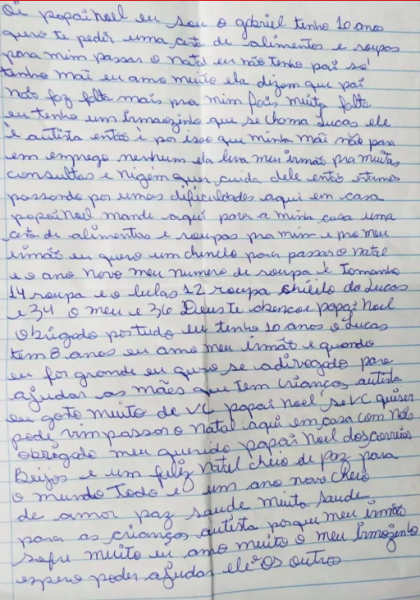 Oi papai noel eu sou o gabriel tenho 10 anos
quero te pedir uma cesta de alimentos e roupas
para mim passar o natal eu não tenho pai só
tenho mãi eu amo muito ela dizem que pai
não faz falta mais pra mim fais muita falta
eu tenho um irmãozinho que se chama Lucas ele
é autista então é por isso que minha mãi não para
em emprego nenhum ela leva meu irmão pra muitas
consultas e nigém quer cuida dele então estamos
passando por umas dificuldades aqui em casa
papai noel mande aqui para a minha casa uma
cesta de alimentos e roupas pra mim e pro meu
irmão eu quero um chinelo para passar o natal
e o ano novo meu numero de roupa é tamanho
14 roupa e o lucas 12 roupa chinelo do Lucas
e 34 o meu e 36 Deus te abençoe papai Noel
Obrigado por tudo eu tenho 10 anos o Lucas
tem 8 anos eu amo meu irmão e quando
eu for grande eu quero se advogado para
ajudar as mães que tem crianças autista
eu goto muito de vc papai noel se vc quiser
pode vim passar o natal aqui em casa com nós
obrigado meu querido papai Noel dos correios
Beijos e um feliz natal cheio de paz para
o mundo todo e um ano novo cheio
de amor paz saude muita saude
para as crianças autista porque meu irmão
sofre muito eu amo muito o meu irmãozinho
espero poder ajudar ele e os outros